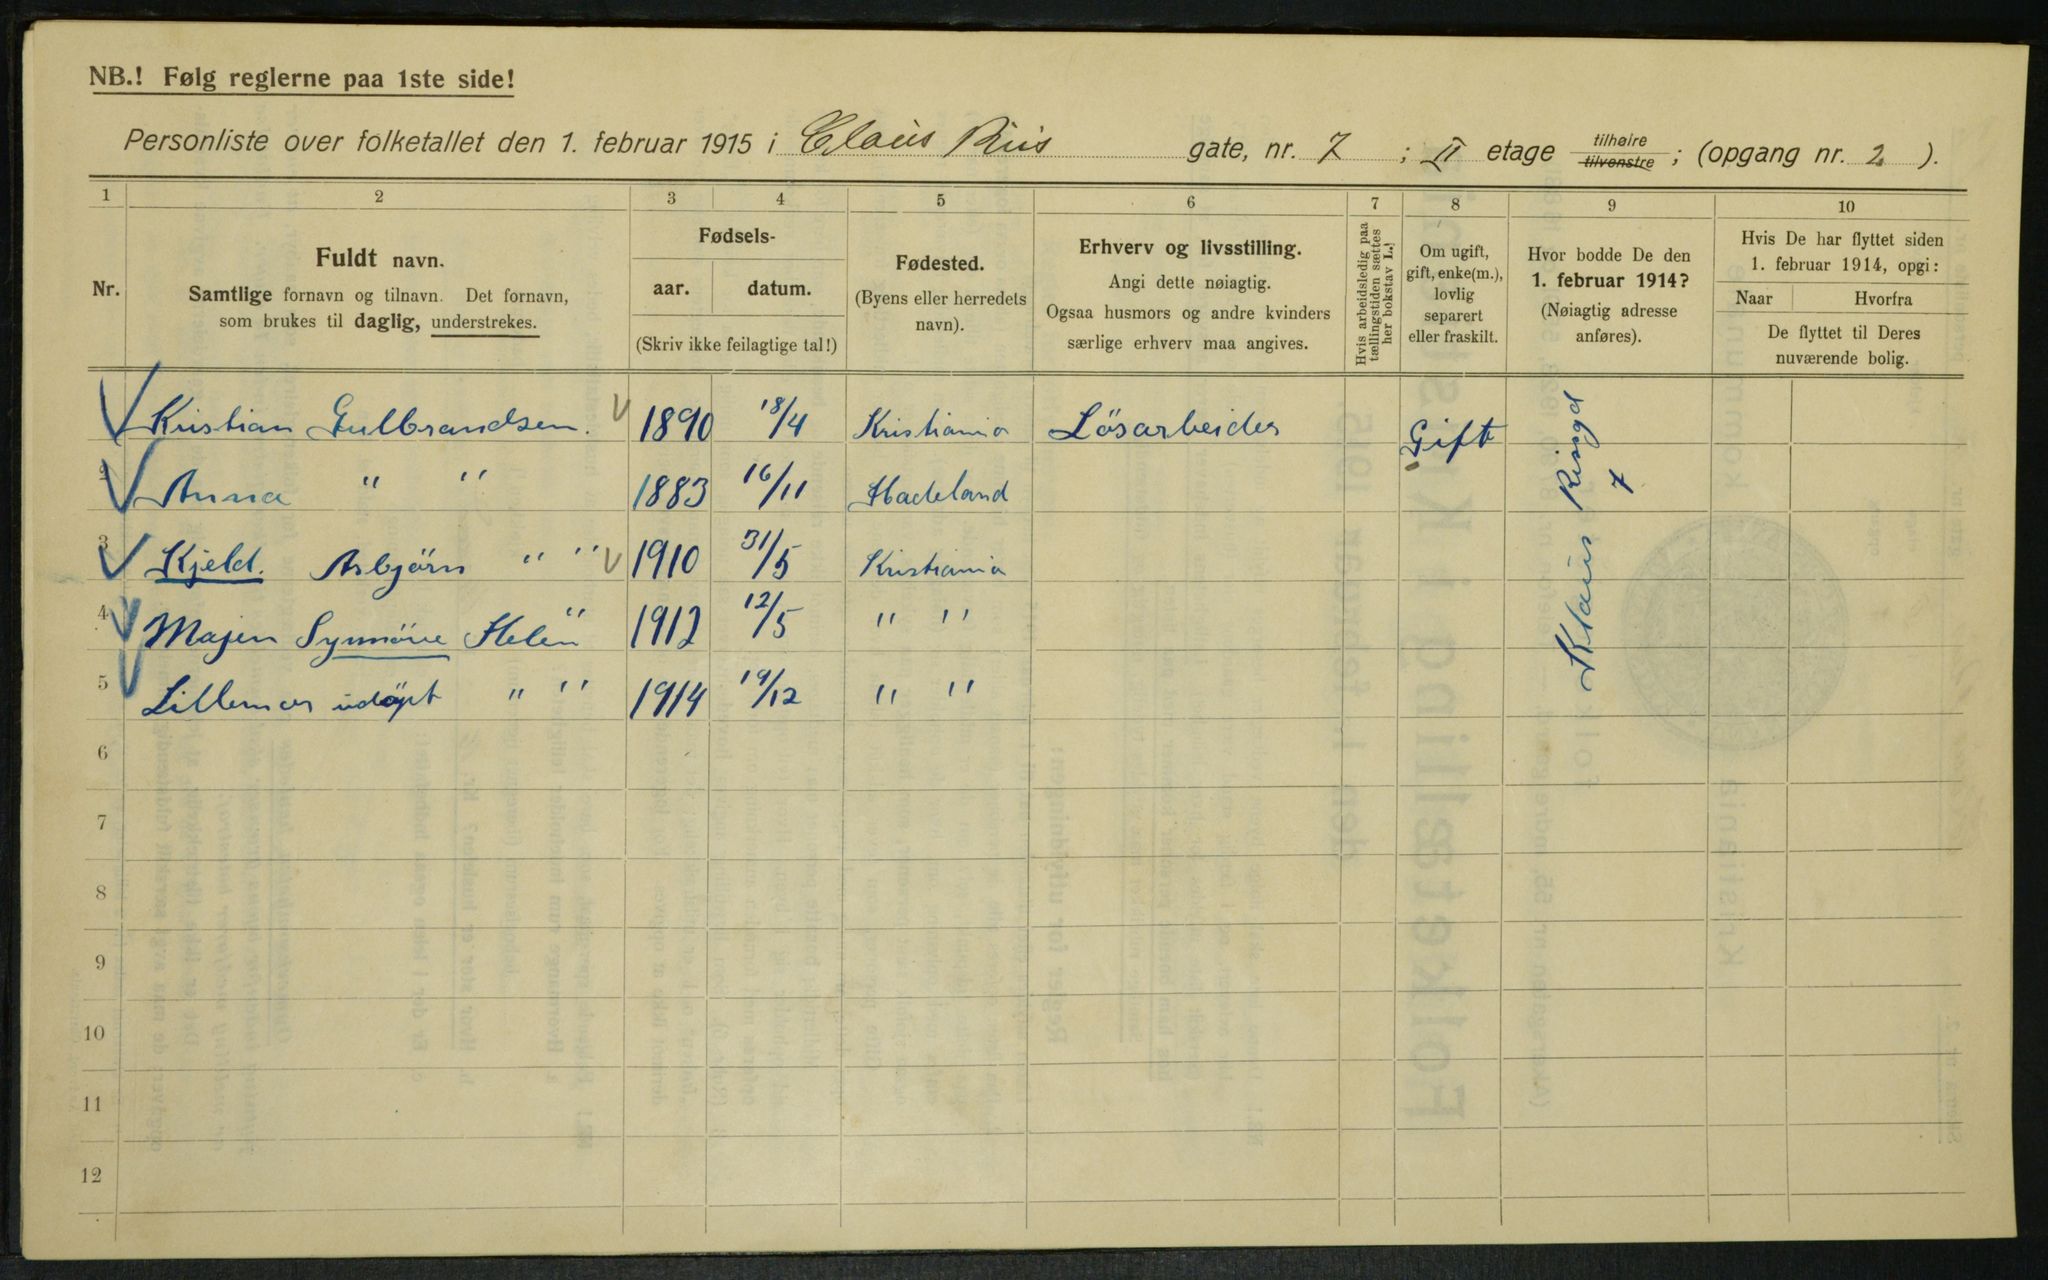 NB.! Følg reglerne paa 1ste side!
Personliste over folketallet den 1. februar 1915 i Claus Riis gate, nr. 7 ; II etage tilhøire tilvenstre ; (opgang nr. 2 ).
1 2 3 4 5 6 7 8 9 10
Nr.
Fuldt navn.
Samtlige fornavn og tilnavn. Det fornavn,
som brukes til daglig, understrekes.
Fødsels-
aar. datum.
(Skriv ikke feilagtige tal!)
Fødested.
(Byens eller herredets
navn).
Erhverv og livsstilling.
Angi dette nøiagtig.
Ogsaa husmors og andre kvinders
særlige erhverv maa angives.
Hvis arbeidsledig paa
tællingstiden sættes
her bokstav L.!
Om ugift,
gift, enke(m.),
lovlig
separert
eller fraskilt.
Hvor bodde De den
1. februar 1914?
(Nøiagtig adresse
anføres).
Hvis De har flyttet siden
1. februar 1914, opgi:
Naar Hvorfra
De flyttet til Deres
nuværende bolig.
Kristian Gulbrandsen. 1890 18/4 Kristiania Løsarbeider Gift
2 Anna " " 1883 16/11 Hadeland
3 Kjeld. Asbjørn " " 1910 31/5 Kristiania
4 Majen Synnöve Helen " 1912 12/5 " "
5 Lillemor udöpt " " 1914 19/12 " "
Klaus Ringd 7
6
7
8
9
10
11
12